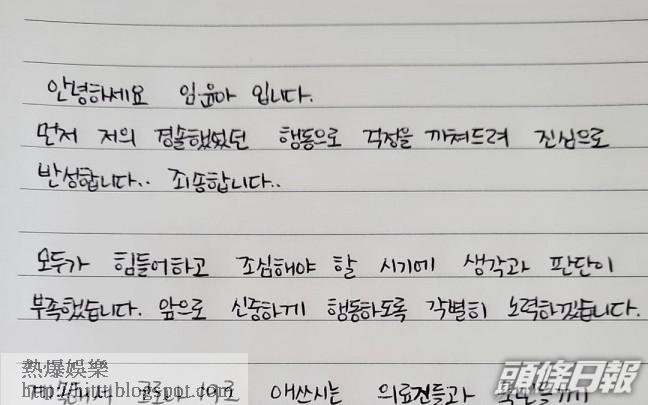 안녕하세요 임윤아 입니다.
먼저 저의 경솔했었던 행동으로 걱정을 끼쳐드려 진심으로
반성합니다.. 죄송합니다..
모두가 힘들어하고 조심해야 할 시기에 생각과 판단이
부족했습니다. 앞으로 신중하게 행동하도록 각별히 노력하겠습니다.
코로나 애쓰시는 의료진들과
熱爆娛樂
http://hittt.blogspot.com
頭條日報